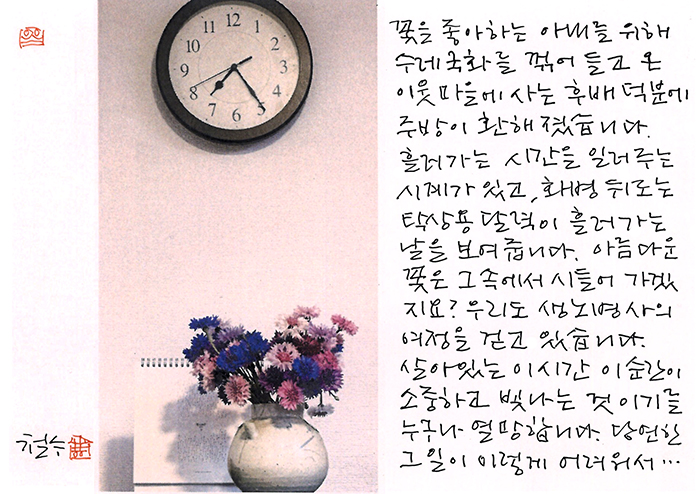 꽃을 좋아하는 아내를 위해
수레국화를 꺾어 들고 온
이웃마을에 사는 후배 덕분에
주방이 환해졌습니다.
흘러가는 시간을 일러주는
시계가 있고, 화병 뒤로는
탁상용 달력이 흘러가는
날을 보여줍니다. 아름다운
꽃은 그 속에서 시들어 가겠
지요? 우리도 생노병사의
여정을 걷고 있습니다.
살아있는 이 시간 이 순간이
소중하고 빛나는 것이기를
누구나 열망합니다. 당연한
그 일이 이렇게 어려워서…
철수
12
1
2
3
4
5
6
7
8
9
10
11